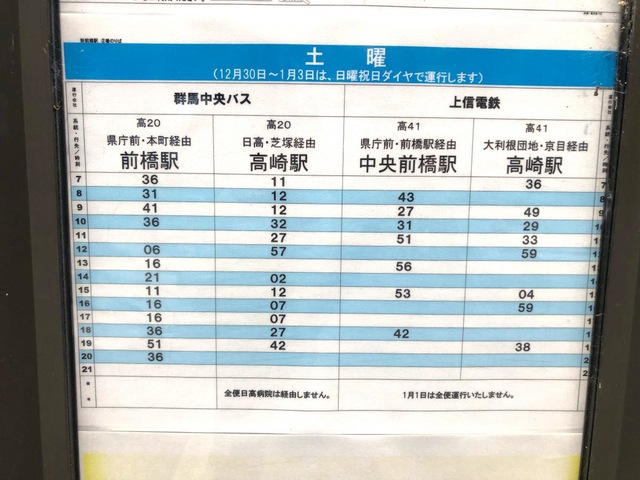 土　曜
(12月30日～1月3日は、日曜祝日ダイヤで運行します)
運行会社 群馬中央バス 上信電鉄
系統・行先／時刻 高20 高20 高41 高41
県庁前・本町経由 日高・芝塚経由 県庁前・前橋駅経由 大利根団地・京目経由
前橋駅 高崎駅 中央前橋駅 高崎駅
7 36 11 36 7
8 31 12 43 8
9 41 12 27 49 9
10 36 32 31 29
11 27 51 33
12 06 57 59
13 16 56
14 21 02
15 11 12 53 04
16 16 07 59
17 16 07
18 36 27 42
19 51 42 38
20 36
21
全便日高病院は経由しません。 1月1日は全便運行いたしません。